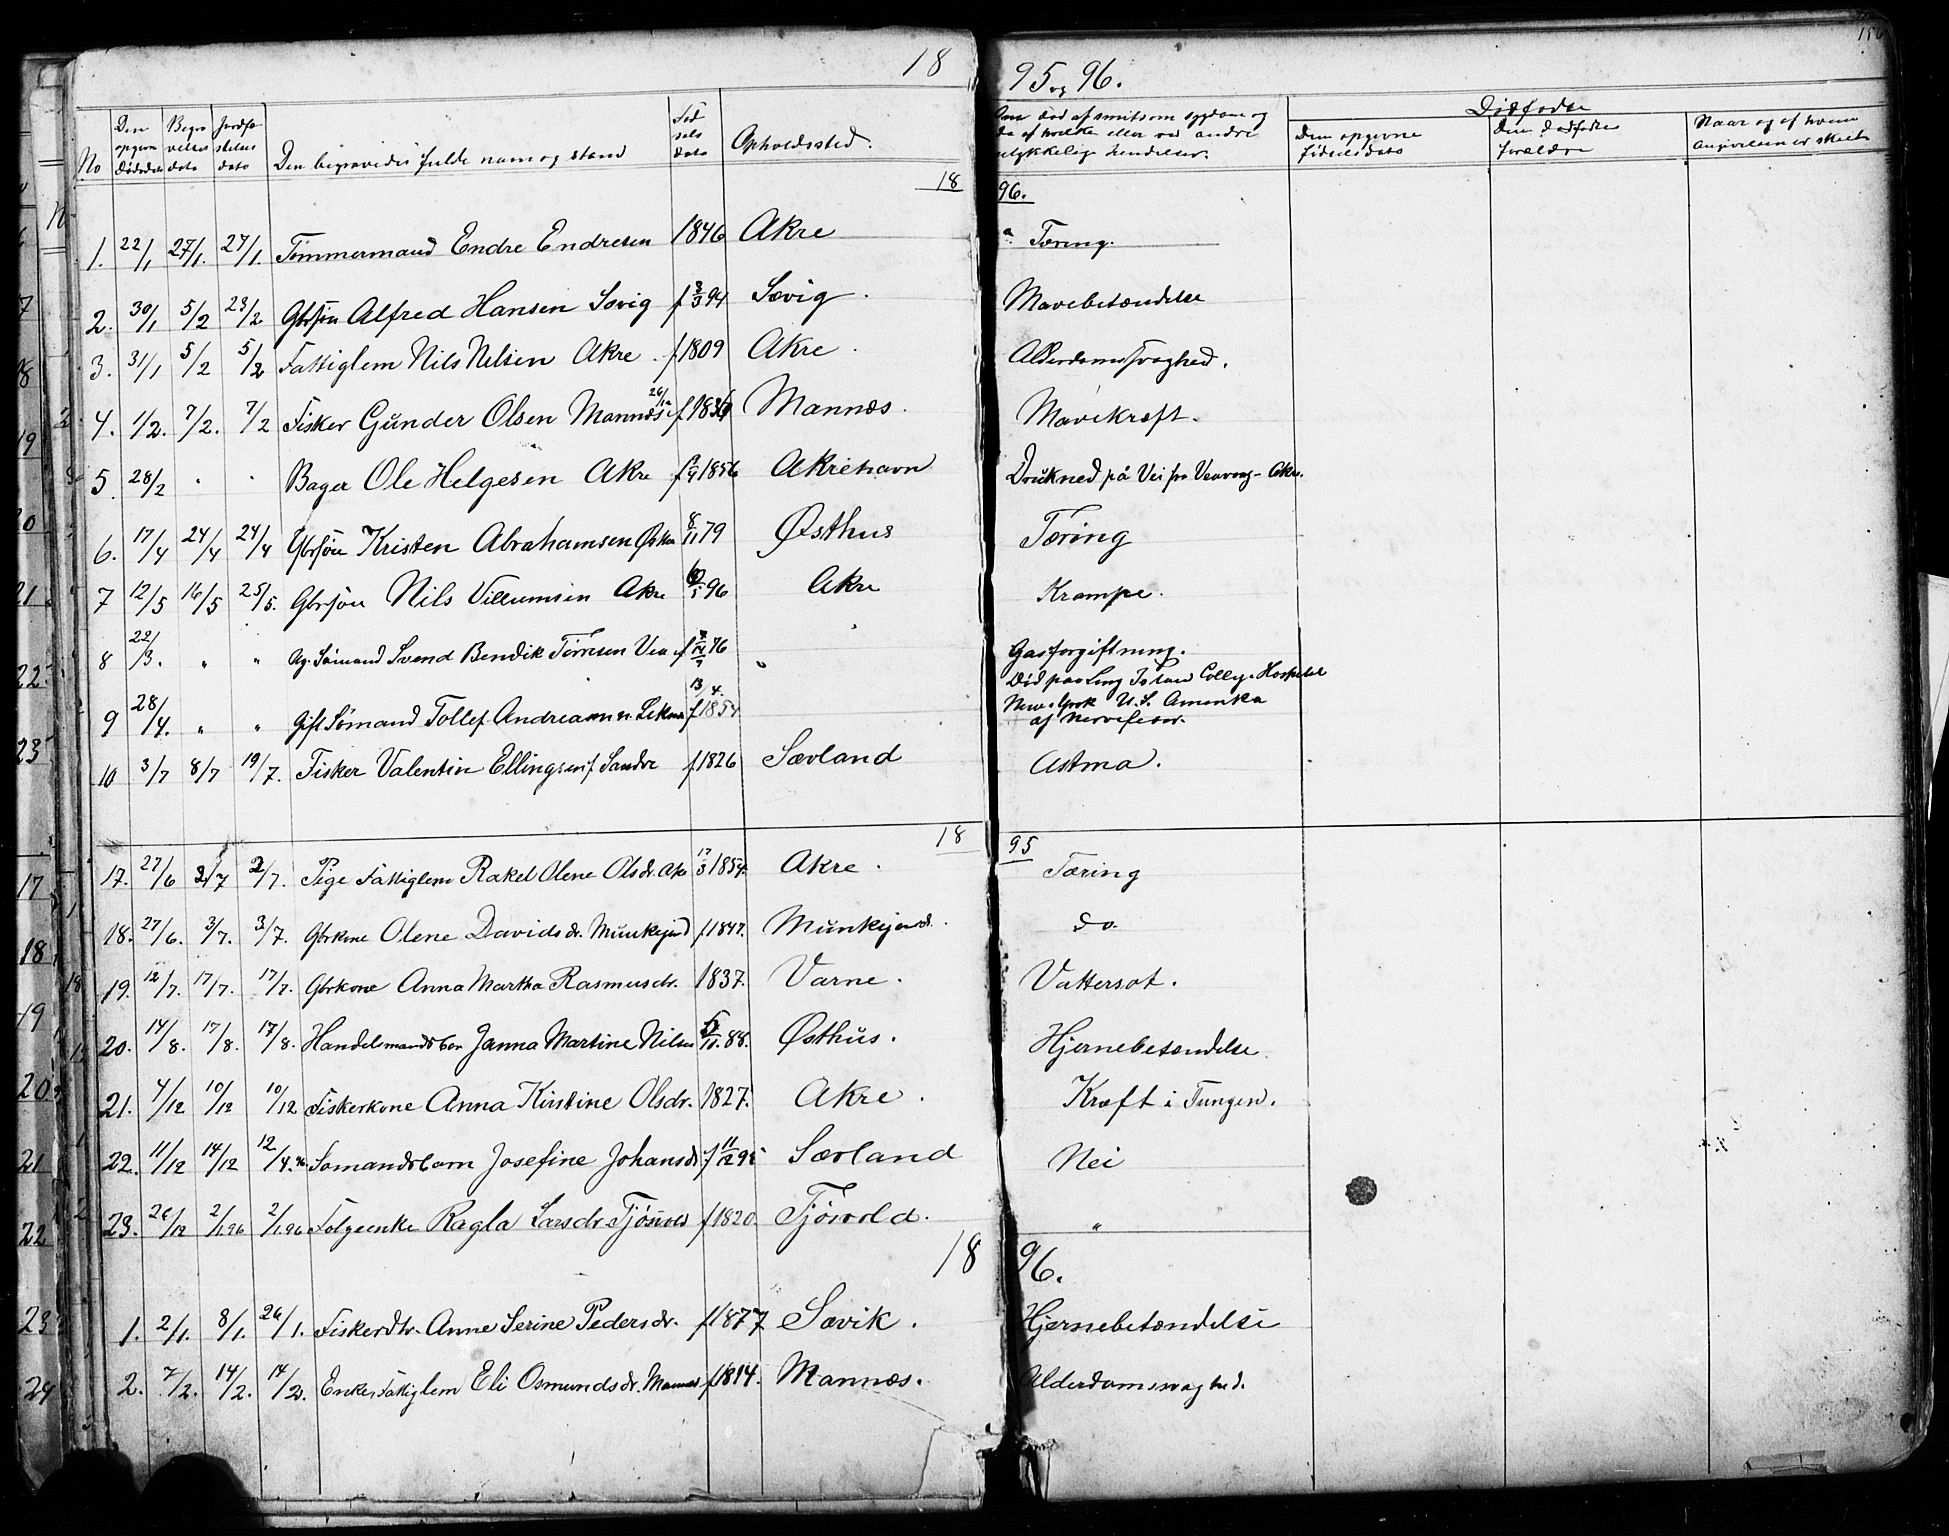 18 95 og 96.
No Den opgivne Dødsdato Begravelses dato Jordfæstelses dato Den begravedes fulde navn og stand Fødselsdato Opholdssted. Om død af smitsom sygdom og da af hvilken eller ved andre ulykkelige hendelser. Dødfødte
Den opgivne fødselsdato Den dødfødtes forældre Naar og af hvem angivelsen er skeet
18 96.
1. 22/1 27/1. 27/1. Tømmermand Endre Endresen 1846 Akre Tæring.
2. 30/1 5/2 23/2 Gbrsøn Alfred Hansen Sævig f 3/3 94 Sævig. Mavebetændelse
3. 31/1 5/2 5/2 Fattiglem Nils Nilsen Akre. f 1809 Akre. Alderdomssvaghed.
4. 1/2. 7/2. 7/2 Fisker Gunder Olsen Mannæs 26/12 f 1836 Mannæs. Mavekræft.
5. 28/2 " " Bager Ole Helgesen Akre 1856 Akrehavn Drukned på Vei fra Veavaag - Akre.
6. 17/4 24/4 24/4 Gbrsøn Kristen Abrahamsen 8/11 79 Østhus Tæring
7 12/5 16/5 25/5. Gbrsøn Nils Villumsen Akre 96 Akre Krampe.
8 22/3. " " Ug. Sømand Svend Bendik Tørresen Vea f 76 " Gasforgiftning.
9 28/4. " " Gift Sømand Tollef Andreassen 13/4. f 1854 Død paa Long Island Colleg. Hospital
New-York U.S. Amerika
af Nervefeber.
10 3/7 8/7 19/7. Fisker Valentin Ellingsen f. Sandve f 1826 Sævland Astma.
18 95
17. 27/6 2/7 2/7. Pige Fattiglem Rakel Olene Olsdr. Akre 17/3 1854. Akre. Tæring
18. 27/6. 3/7. 3/7. Gbrkone Olene Davidsdr. Munkejord f 1847. Munkejord. do.
19. 12/7. 17/7. 17/7. Gbrkone Anna Martha Rasmusdr. 1837. Varne. Vattersot.
20. 14/8. 17/8. 17/8. Handelmandsbarn Janna Martine Nilsen 88. Østhus. Hjernebetændelse
21. 4/12 10/12 10/12 Fiskerkone Anna Kirstine Olsdr. 1827. Akre. Kræft i Tungen.
22. 11/12 14/12 12/4.96 Sømandsbarn Josefine Johansdr f 11/12 95 Sævland Nei
23. 26/12 2/1.96 2/1.96 Følgeenke Ragla Larsdr. Tjøsvold f 1820. Tjøsvold. "
18 96.
1. 2/1. 8/1. 26/1. Fiskerdtr. Anne Serine Pedersdr. f 1877 Sævik. Hjernebetændelse
2. 7/2. 14/2. 14/2. Enke, Fattiglem Eli Osmundsdr. Mannæs f 1814. Mannæs. Alderdomssvaghed.